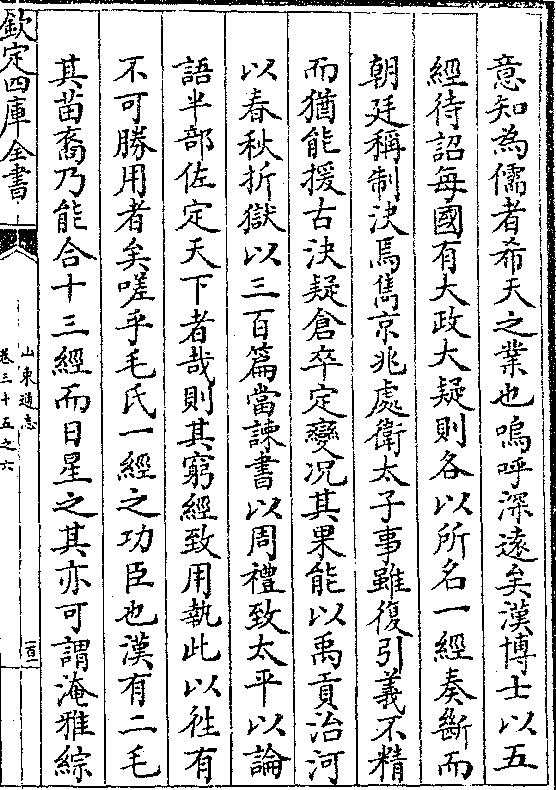 意知為儒者希天之業也嗚呼深遠矣漢博士以五
經待詔每國有大政大疑則各以所名一經奏斷而
朝廷稱制決焉雋京兆處衛太子事雖復引義不精
而猶能援古決疑倉卒定變况其果能以禹貢治河
以春秋折獄以三百篇當諫書以周禮致太平以論
語半部佐定天下者哉則其窮經致用執此以徃有
不可勝用者矣嗟乎毛氏一經之功臣也漢有二毛
其苗裔乃能合十三經而日星之其亦可謂淹雅綜
欽定四庫全書
山東通志
卷三十五之六